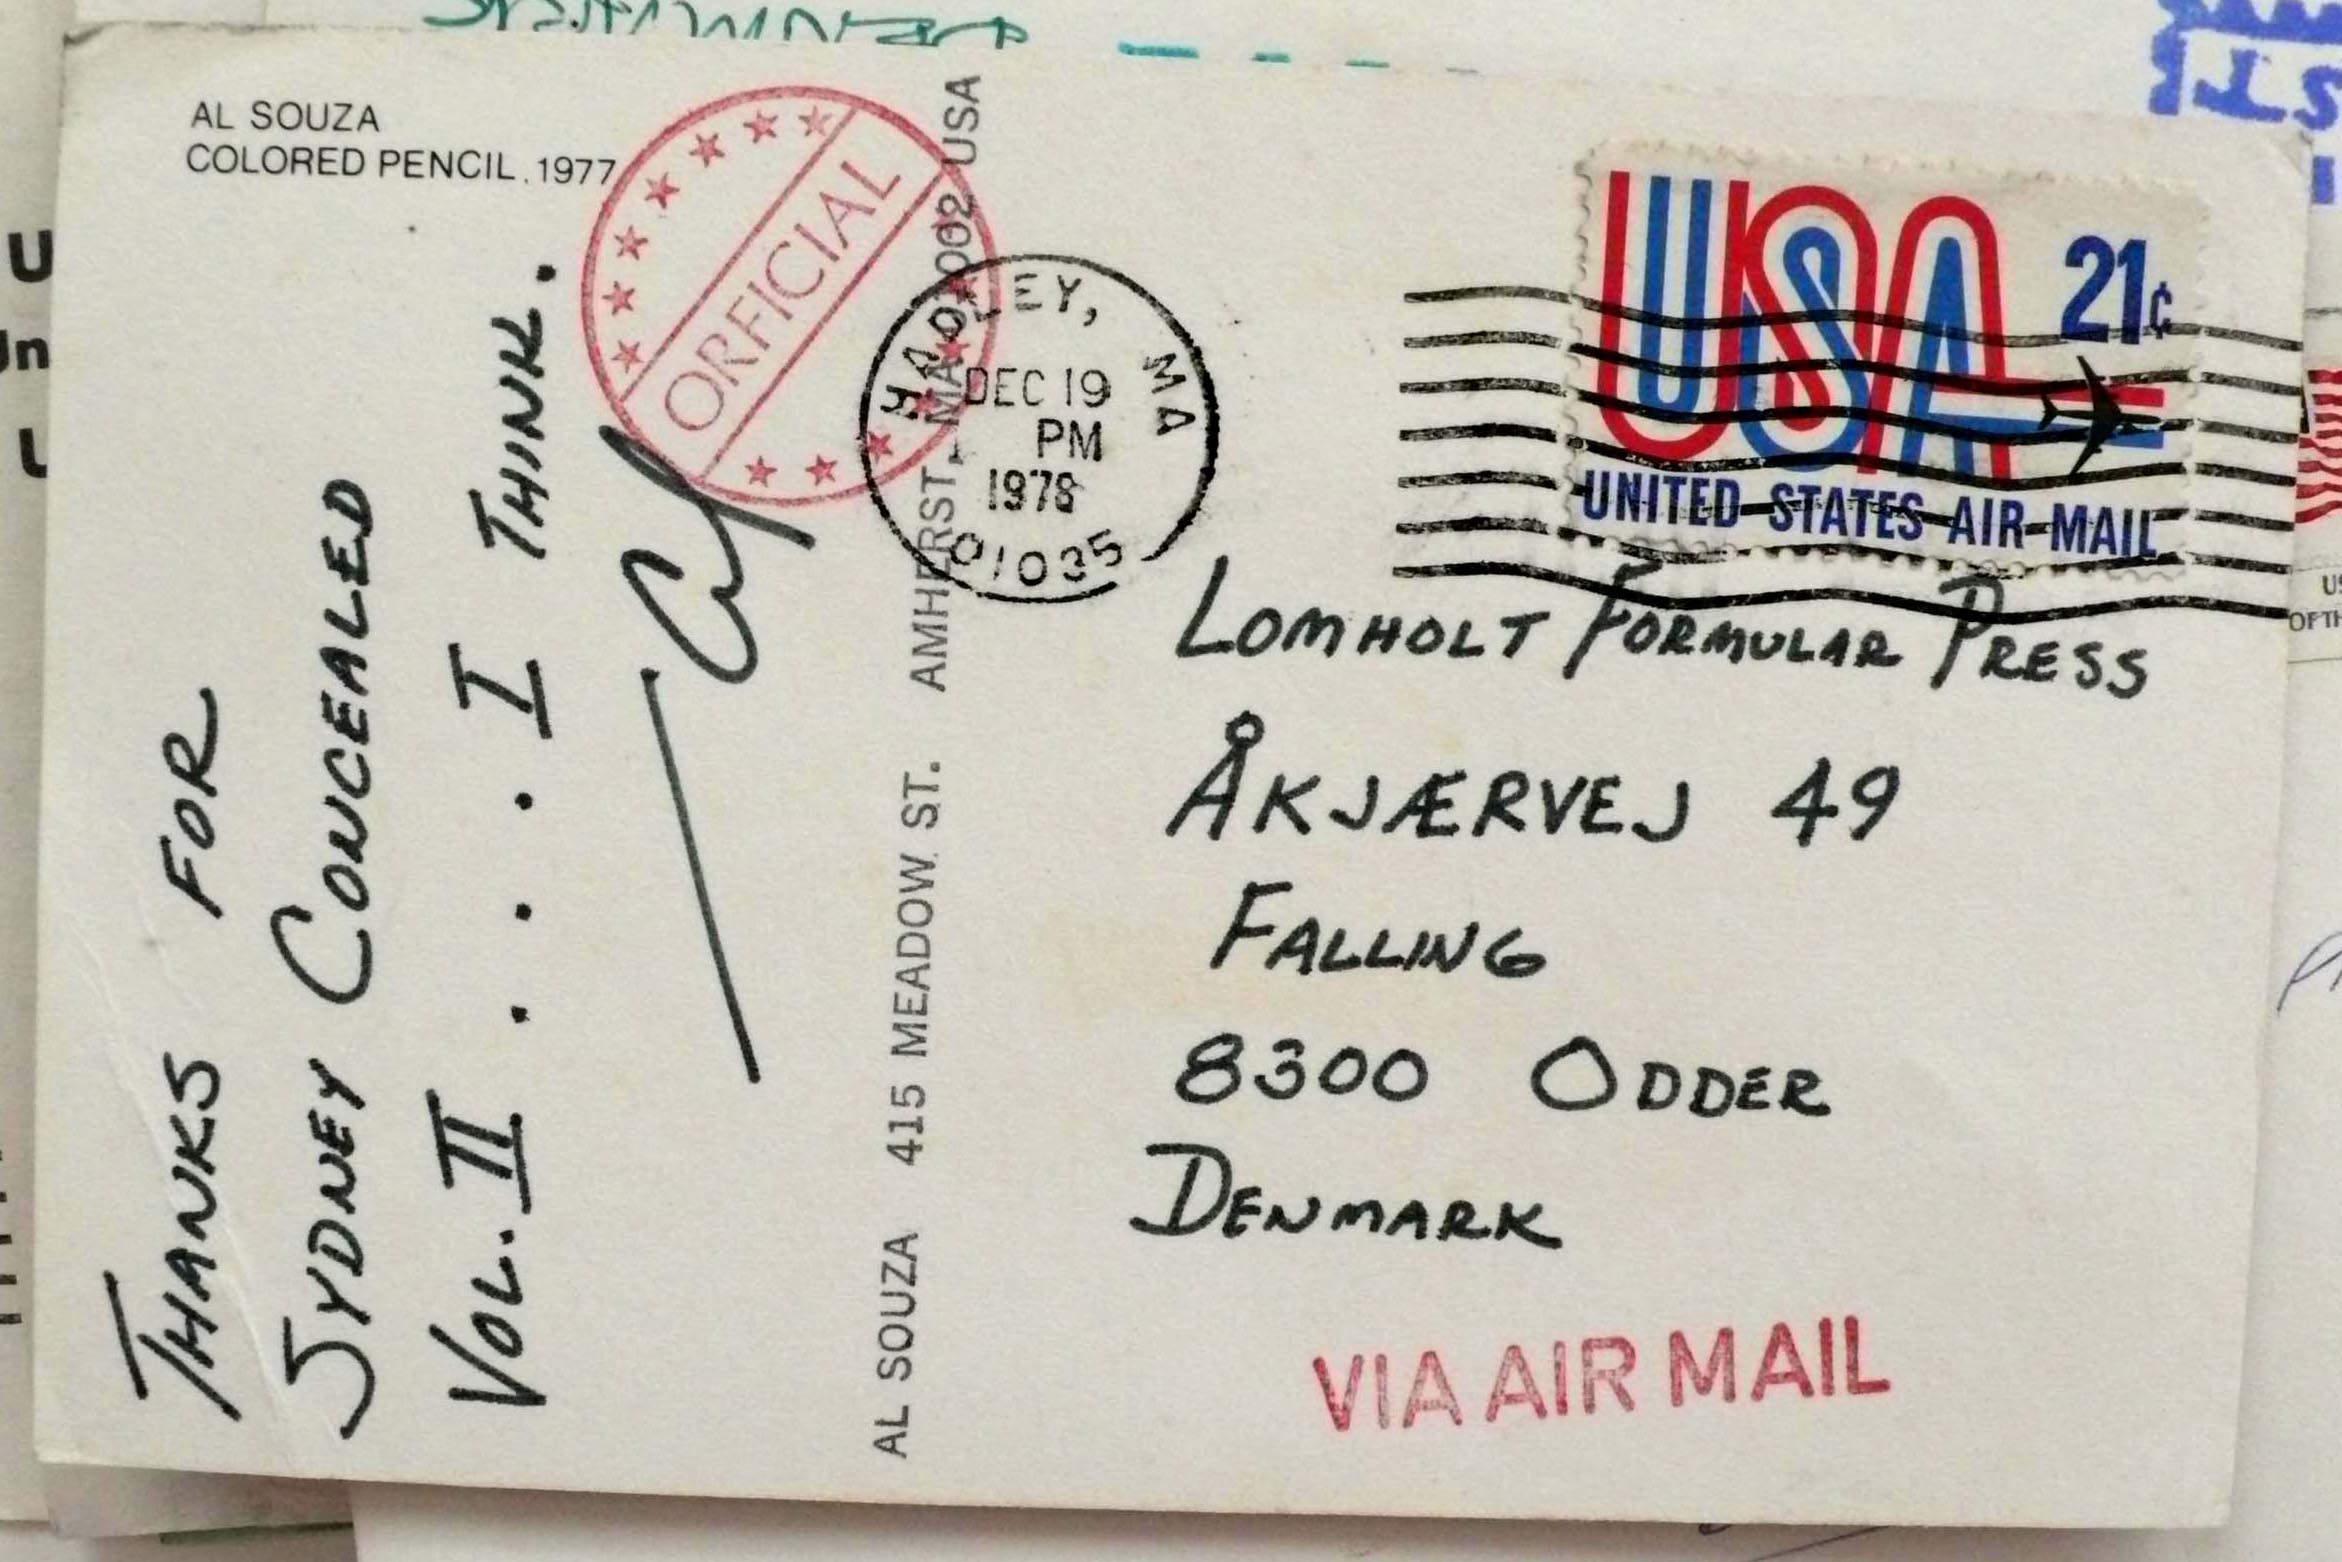 AL SOUZA
COLORED PENCIL. 1977
ORFICIAL
HADLEY, MA
DEC 19
PM
1978
01035
USA 21¢
UNITED STATES AIR MAIL
THANKS FOR
SYDNEY CONCEALED
VOL. II . . . I THINK.
Al
AL SOUZA 415 MEADOW ST. AMHERST, MA 01002 USA
LOMHOLT FORMULAR PRESS
ÅKJÆRVEJ 49
FALLING
8300 ODDER
DENMARK
VIA AIR MAIL